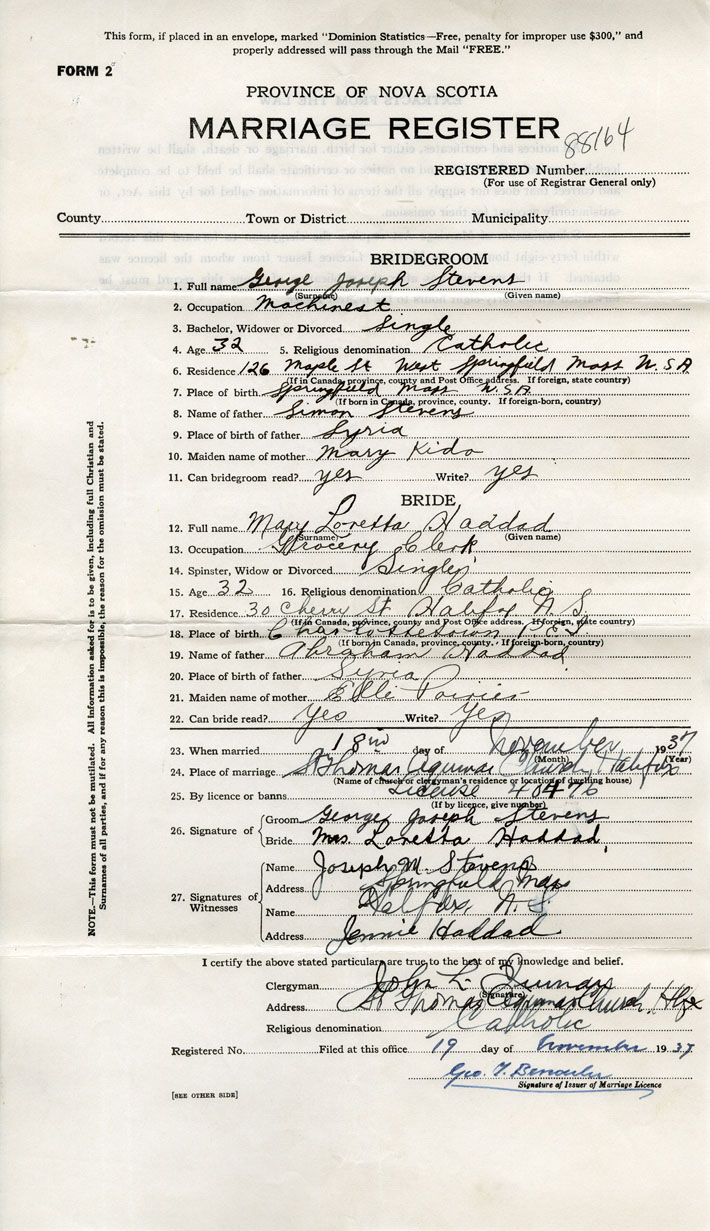 This form, if placed in an envelope, marked "Dominion Statistics—Free, penalty for improper use $300," and
properly addressed will pass through the Mail "FREE."
FORM 2
PROVINCE OF NOVA SCOTIA
MARRIAGE REGISTER
88164
REGISTERED Number
(For use of Registrar General only)
County Town or District Municipality
BRIDEGROOM
1. Full name George Joseph Stevens
(Surname) (Given name)
2. Occupation Machinest
3. Bachelor, Widower or Divorced Single
4. Age 32 5. Religious denomination Catholic
6. Residence 126 Maple St West Springfield Mass U.S.A
(If in Canada, province, county and Post Office address. If foreign, state country)
7. Place of birth Springfield Mass U.S.A
(If born in Canada, province, county. If foreign-born, country)
8. Name of father Simon Stevens
9. Place of birth of father Syria
10. Maiden name of mother Mary Kido
11. Can bridegroom read? yes Write? yes
BRIDE
12. Full name Mary Loretta Haddad
(Surname) (Given name)
13. Occupation Grocery Clerk
14. Spinster, Widow or Divorced Single
15. Age 32 16. Religious denomination Catholic
17. Residence 30 Cherry St Halifax N.S.
(If in Canada, province, county and Post Office address. If foreign, state country)
18. Place of birth Charlottetown P.E.I
(If born in Canada, province, county. If foreign-born, country)
19. Name of father Abraham Haddad
20. Place of birth of father Syria
21. Maiden name of mother Elli Poirier
22. Can bride read? Yes Write? Yes
23. When married 18th day of November 1937
(Month) (Year)
24. Place of marriage St Thomas Aquinas Church, Halifax
(Name of church or clergyman's residence or location of dwelling house)
25. By licence or banns License 48476
(If by licence, give number)
26. Signature of
Groom George Joseph Stevens
Bride Mrs. Loretta Haddad
27. Signatures of Witnesses
Name Joseph M. Stevens
Address Springfield Mass
Name Halifax, N.S.
Address Jennie Haddad
I certify the above stated particulars are true to the best of my knowledge and belief.
Clergyman John L.
(Signature)
Address St Thomas Aquinas Church, Hfx
Religious denomination Catholic
Registered No. Filed at this office 19 day of November 1937
Geo. T.
Signature of Issuer of Marriage Licence
[SEE OTHER SIDE]
NOTE.—This form must not be mutilated. All information asked for is to be given, including full Christian and
Surnames of all parties, and if for any reason this is impossible, the reason for the omission must be stated.